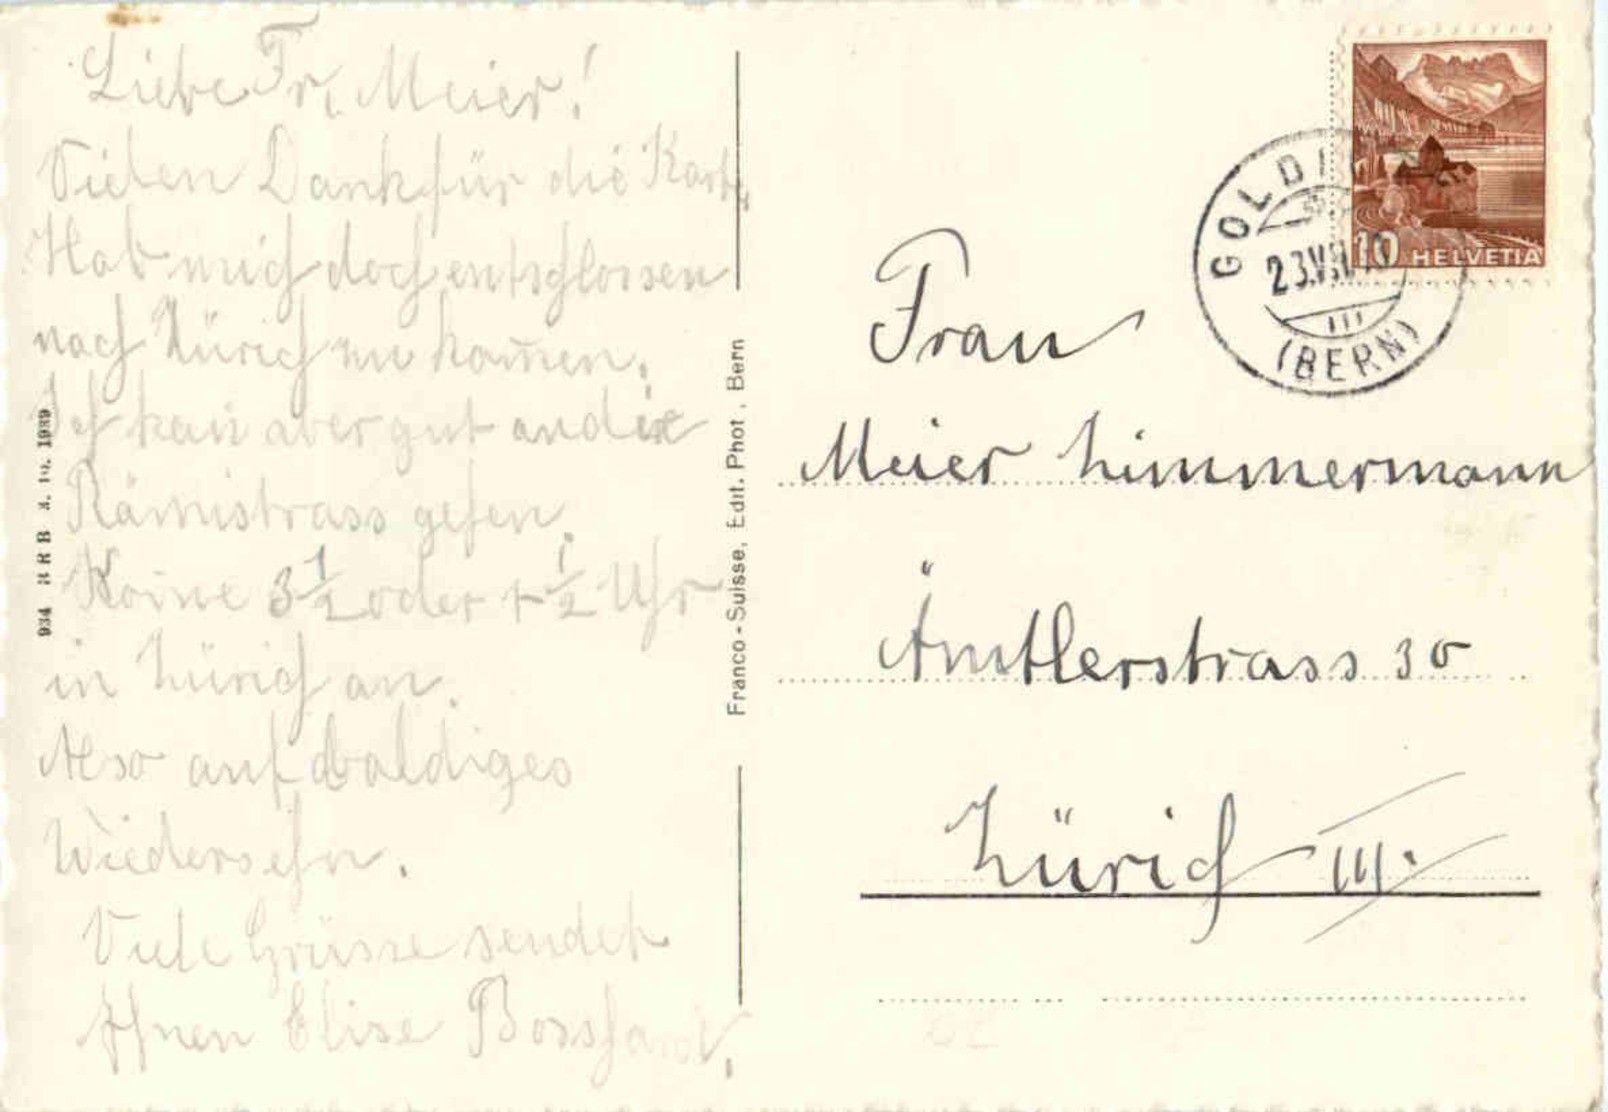 Liebe Fr. Meier!
Vielen Dank für die Karte
Hab mich doch entschlossen
nach Zürich zu kom̅en.
Ich kan̅ aber gut an die
Rämistrass gehen.
Kom̅e 3½ oder 4½ Uhr
in Zürich an.
Also auf baldiges
Wiedersehn.
Viele Grüsse sendet
Ihnen Elise Bosshard.
934 S R B 3. 10. 1939
Franco-Suisse, Edit. Phot, Bern
GOLDI
23.VII
(BERN)
10 HELVETIA
Frau
Meier Zimmermann
Ämtlerstrass 30
Zürich III.